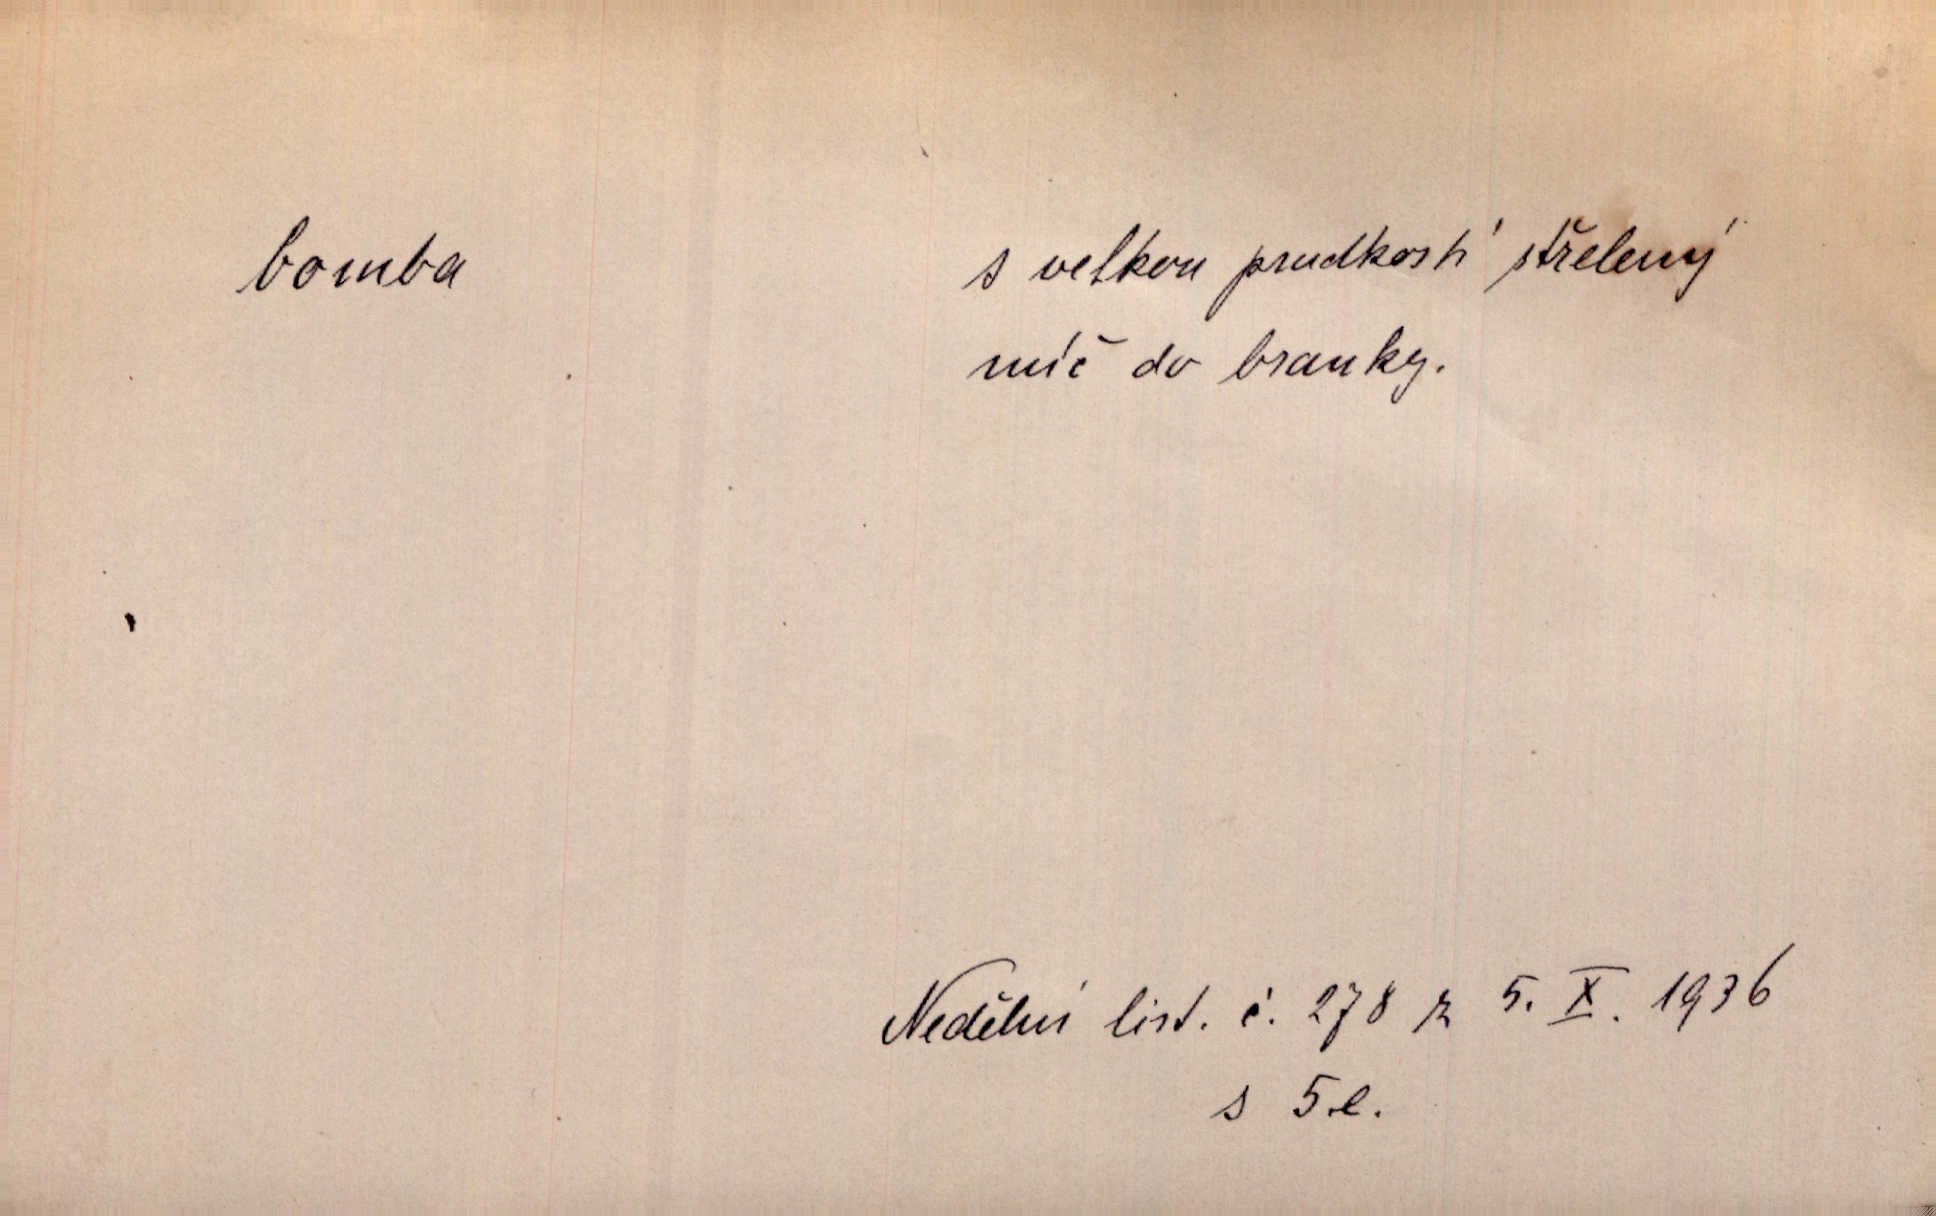 bomba
s velkou prudkostí střelený
míč do branky.
Nedělní list. č. 278 z 5. X. 1936
s 5.c.